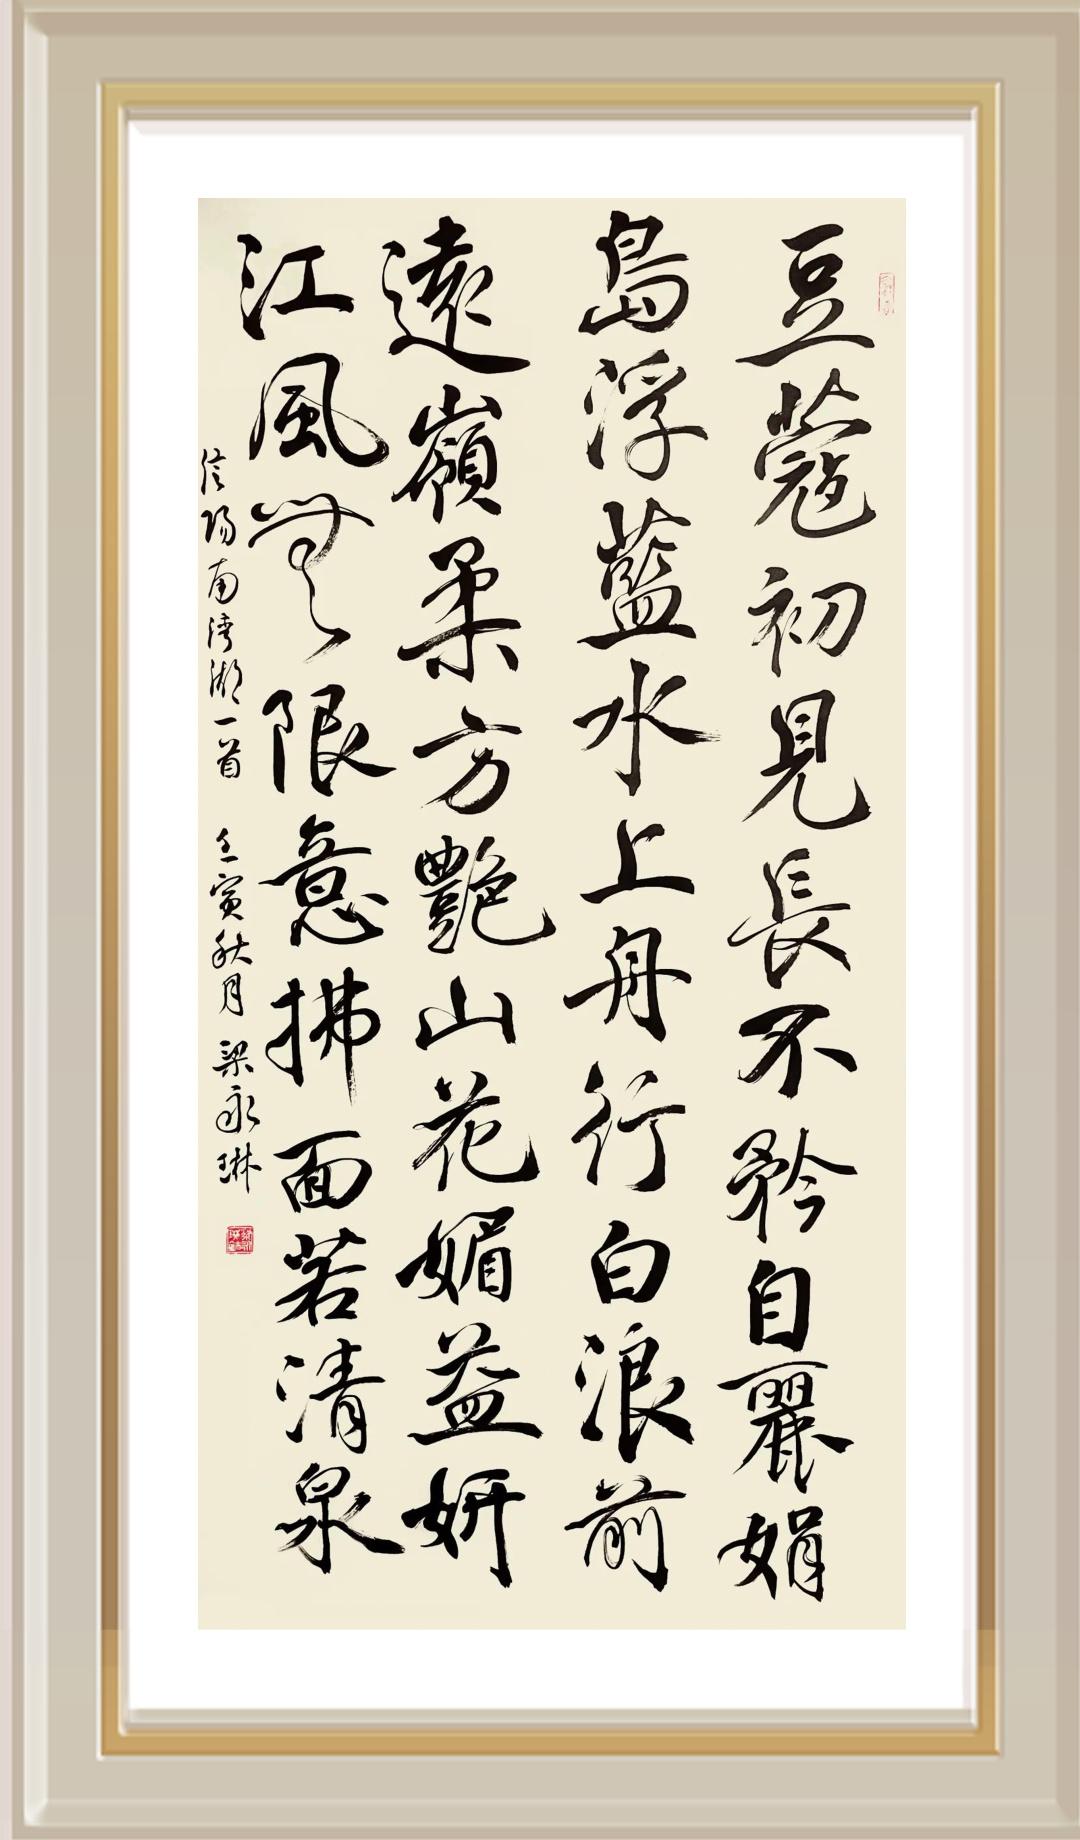 豆蔻初見長不矜自麗娟
島浮藍水上舟行白浪前
遠嶺柔方艷山花媚益妍
江風無限意拂面若清泉
信陽南湾湖一首 壬寅秋月 梁永琳